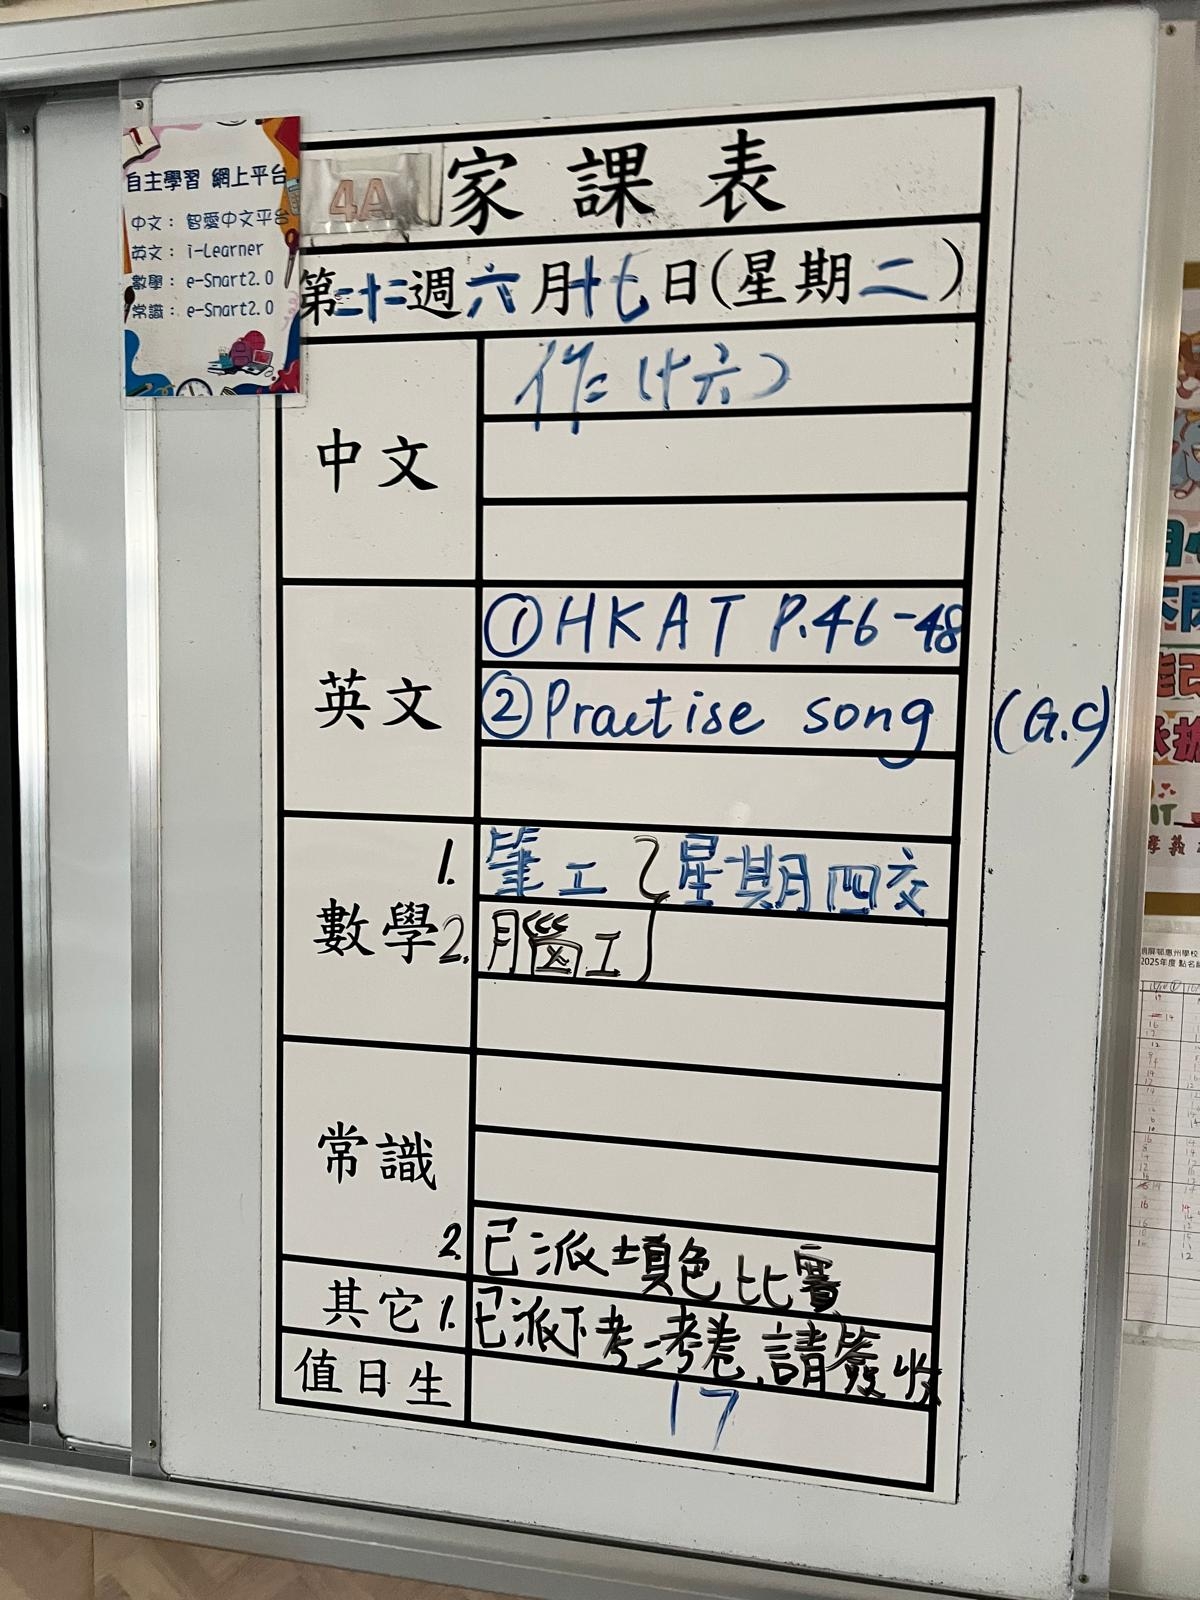 自主學習 網上平台
中文： 智愛中文平台
英文： i-Learner
數學： e-Smart2.0
常識： e-Smart2.0
4A
家課表
第三十二週六月十七日(星期二)
中文
作(十六)
英文
①HKAT P.46-48
②Practise song (G.C)
數學
1. 筆工
星期四交
2. 腦工
常識
2. 已派填色比賽
其它
1. 已派下考二考卷,請簽收
值日生
17